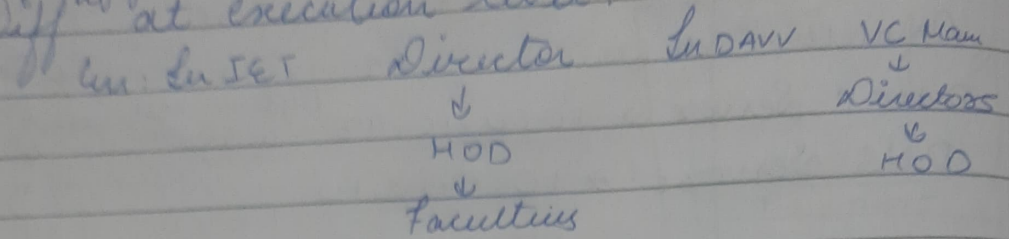 at execution
In IET Director In DAVV VC Mam
↓ ↓
Directors
HOD ↓
↓ HOD
Faculties